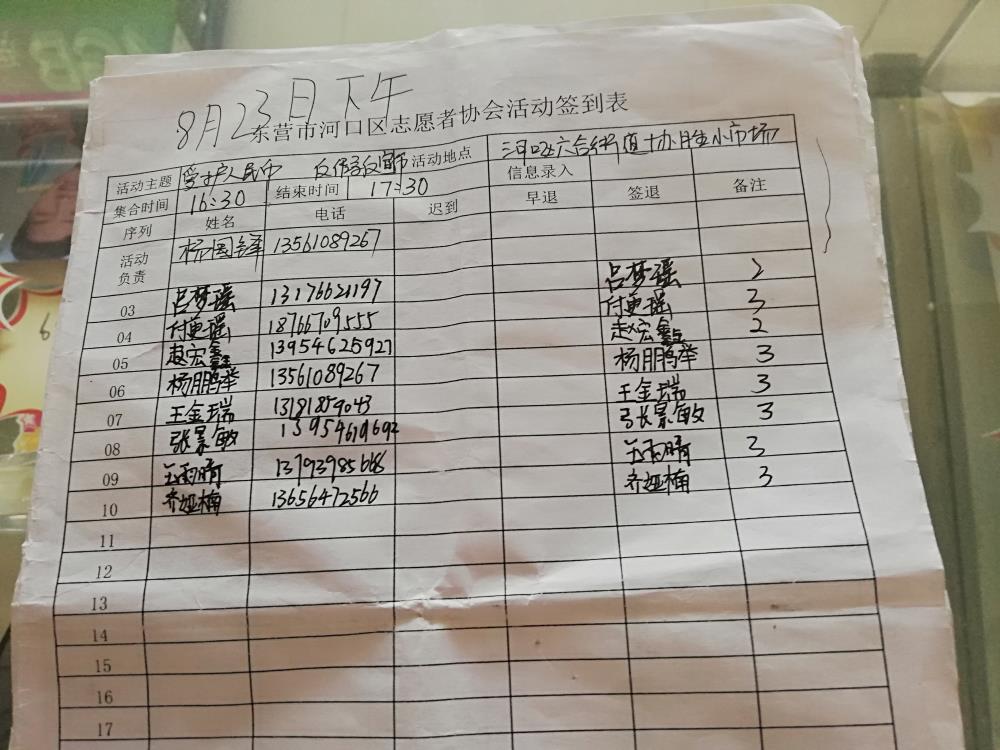 8月23日下午
东营市河口区志愿者协会活动签到表
活动主题 爱护人民币 反传教宣币 活动地点 河口六合街道协胜小市场
集合时间 16:30 结束时间 17:30 信息录入
序列 姓名 电话 迟到 早退 签退 备注
活动负责 杨国锋 13561089267
03 吕梦瑶 13176621197 吕梦瑶 2
04 付更瑶 18766709555 付更瑶 3
05 赵宏鑫 13954625927 赵宏鑫 2
06 杨鹏举 13561089267 杨鹏举 3
07 王金瑞 13181859043 王金瑞 3
08 张景敏 13954619692 张景敏 3
09 王雨晴 13793985668 王雨晴 3
10 齐娅楠 13656472566 齐娅楠 3
11
12
13
14
15
16
17